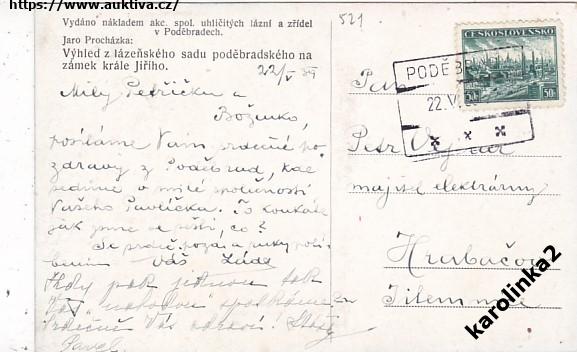 https://www.auktiva.cz/
Vydáno nákladem akc. spol. uhličitých lázní a zřídel
v Poděbradech.
Jaro Procházka:
Výhled z lázeňského sadu poděbradského na
zámek krále Jiřího.
521
22/V 39
Milý Petříčku a
Boženko,
posíláme Vám srdečné po-
zdravy z Poděbrad, kde
sedíme v milé společnosti
Vašeho Pavlíčka. To koukáte
jak jsme se sešli, co?
Se srdeč. pozd. a ruky políbením Váš
Kdy pak jednou tak
"náhodou" spolu
Srdečně Vás zdraví!
Pavel.
ČESKOSLOVENSKO
50h 50h
PODĚBRADY
22.V.
Pan
Petr
majitel elektrárny
Hrabačov
Jilemnice
karolinka2